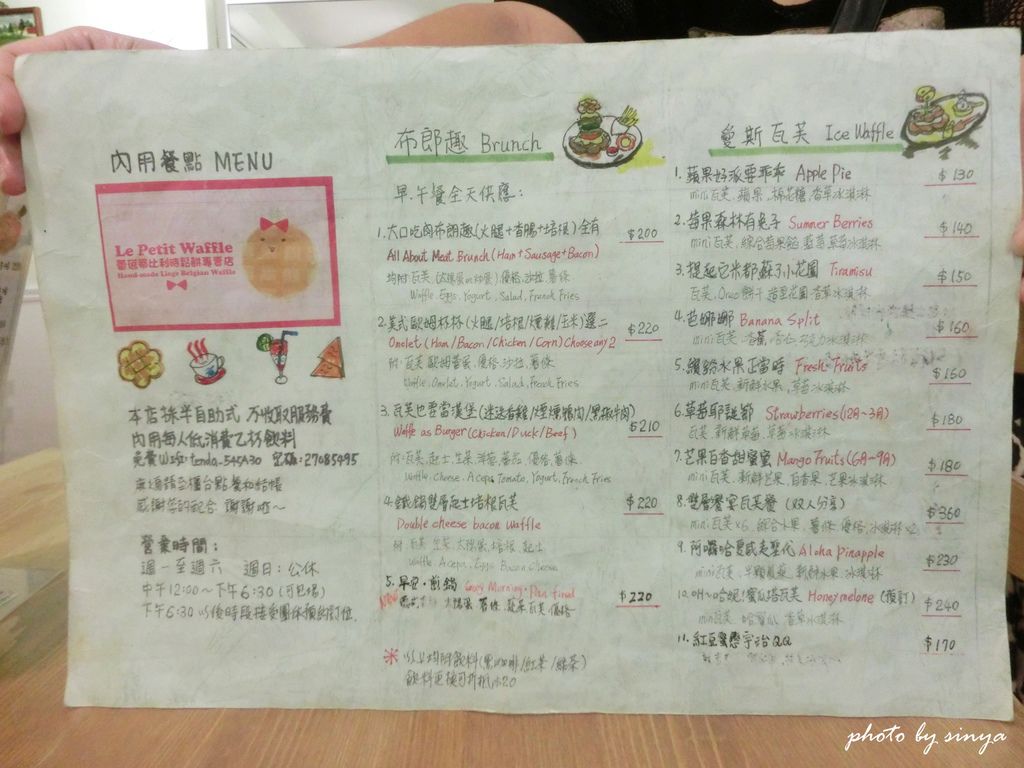 內用餐點 MENU
Le Petit Waffle
比利時鬆餅專賣店
Hand-made Liege Belgian Waffle
本店採半自助式 不收取服務費
內用每人低消費乙杯飲料
免費Wifi: tenda-545A30 密碼: 27085495
請至櫃台點餐和結帳
感謝您的配合 謝謝啦～
營業時間：
週一至週六 週日：公休
中午12:00～下午6:30 (可包場)
下午6:30以後時段接受團体預約訂位
布郎趣 Brunch
早.午餐全天供應：
1.大口吃肉布朗趣(火腿+香腸+培根)全有 $200
All About Meat Brunch (Ham+Sausage+Bacon)
均附:瓦芙.優格.沙拉.薯條
Waffle, Eggs, Yogurt, Salad, French Fries
2.美式歐姆杯杯(火腿/培根/燻雞/玉米)選二 $220
Omolet (Ham/Bacon/Chicken/Corn) Choose any 2
附:瓦芙.歐姆蛋.優格.沙拉.薯條
Waffle, Omolet, Yogurt, Salad, French Fries
3.瓦芙也要當漢堡(迷迭香雞/煙燻鴨肉/黑椒牛肉) $210
Waffle as Burger (Chicken/Duck/Beef)
附:瓦芙.起士.生菜.洋蔥.蕃茄.優格.薯條
Waffle, Cheese, Tomato, Yogurt, French Fries
4.鐵鍋雙層起士培根瓦芙 $220
Double cheese bacon Waffle
附:瓦芙.生菜.太陽蛋.培根.起士
Waffle, Eggs Bacon Cheese
5.早安.煎鍋 Good Morning. $220
New 太陽蛋.薯條.蔬菜.瓦芙.優格
※以上均附飲料(黑咖啡/紅茶/綠茶)
飲料更換可折抵$20
曼斯瓦芙 Ice Waffle
1.蘋果好派要乖乖 Apple Pie $130
mini瓦芙.蘋果.棉花糖.香草冰淇淋
2.莓果森林有兔子 Summer Berries $140
mini瓦芙.綜合莓果.藍莓.草莓冰淇淋
3.提起它米都蘇了小花園 Tiramisu $150
瓦芙.Oreo餅干.花園.香草冰淇淋
4.芭娜娜 Banana Split $160
mini瓦芙.香蕉.杏仁.巧克力冰淇淋
5.繽紛水果正當時 Fresh Fruits $160
mini瓦芙.新鮮水果.草莓冰淇淋
6.草莓耶誕節 Strawberries(12月~3月) $180
瓦芙.新鮮草莓.草莓冰淇淋
7.芒果百香甜蜜蜜 Mango Fruits(6月~9月) $180
mini瓦芙.新鮮芒果.百香果.芒果冰淇淋
8.雙層饗宴瓦芙餐(双人分享) $360
mini瓦芙x6.綜合水果.薯條.優格.冰淇淋x2
9.阿囉哈夏威夷聖代 Aloha Pinapple $230
mini瓦芙.半顆鳳梨.新鮮水果.冰淇淋
10.哈妮!蜜瓜塔瓦芙 Honeymelone (預訂) $240
mini瓦芙.哈蜜瓜.香草冰淇淋
11.紅豆蜜戀宇治QQ $170
photo by sinya